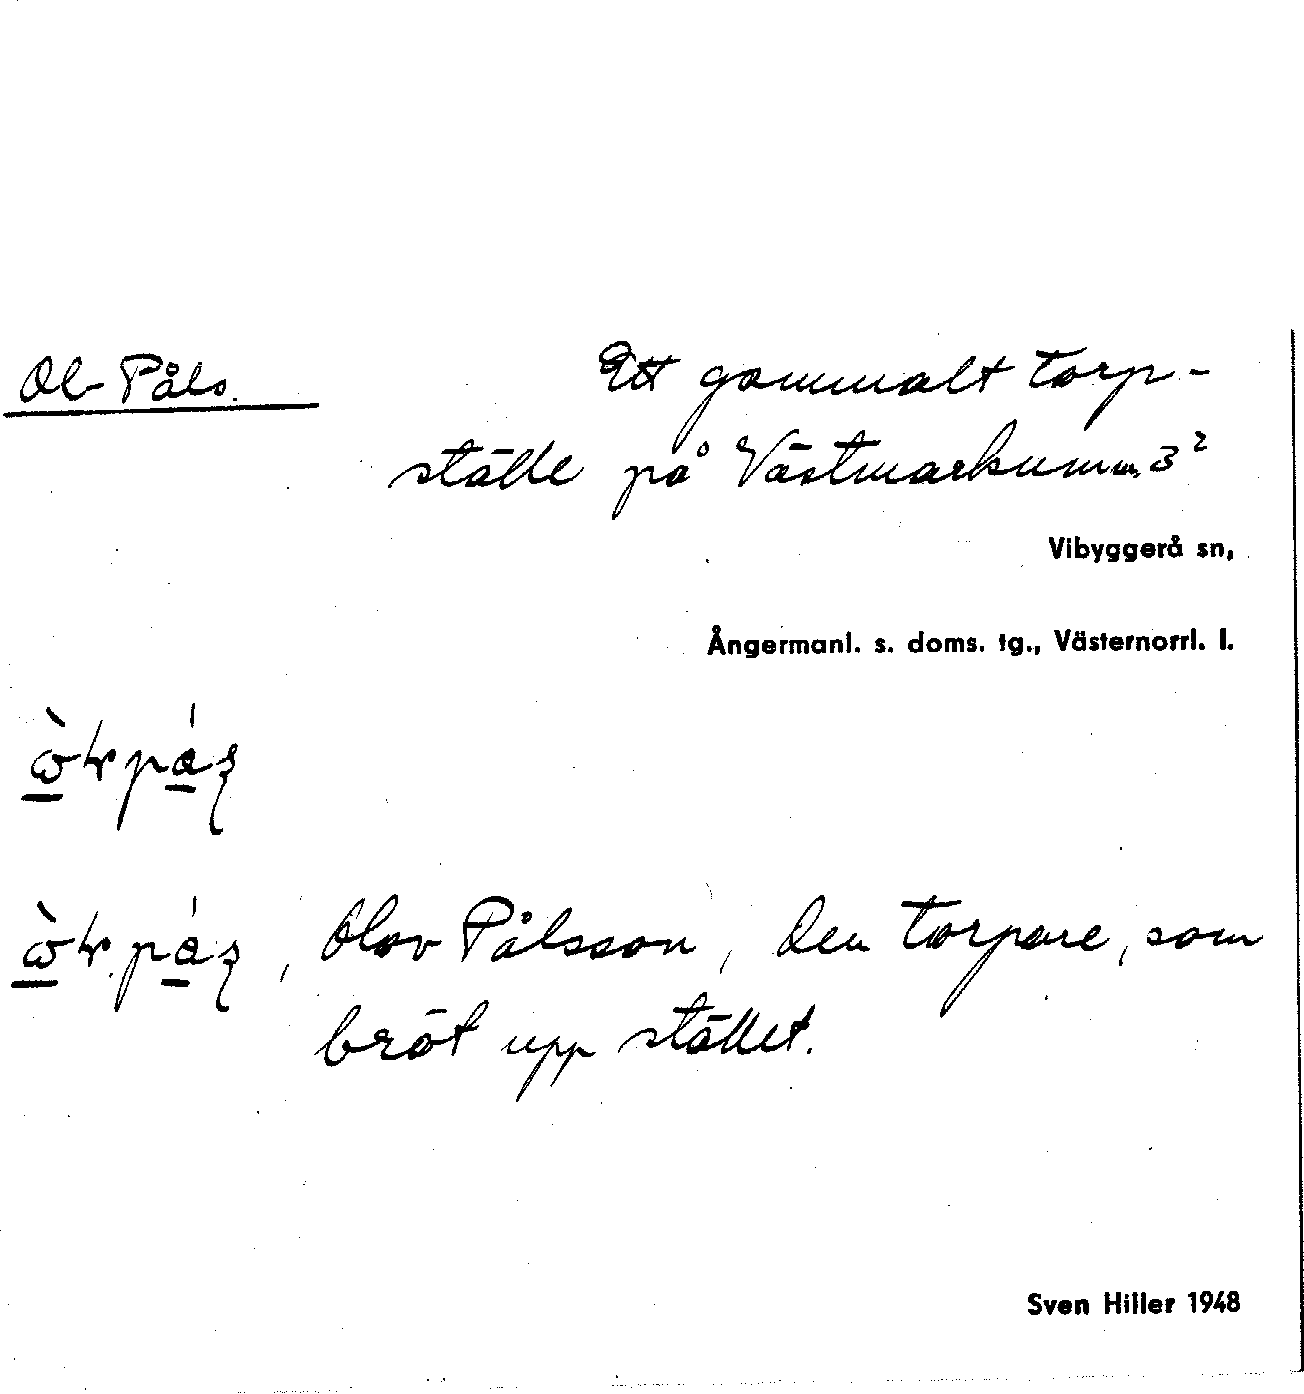 Ol-Påls. Ett gammalt torp-
ställe på Västmarkum 3²
Vibyggerå sn,
Ångermanl. s. doms. tg., Västernorrl. l.
Olov Pålsson, den torpare, som
bröt upp stället.
Sven Hiller 1948